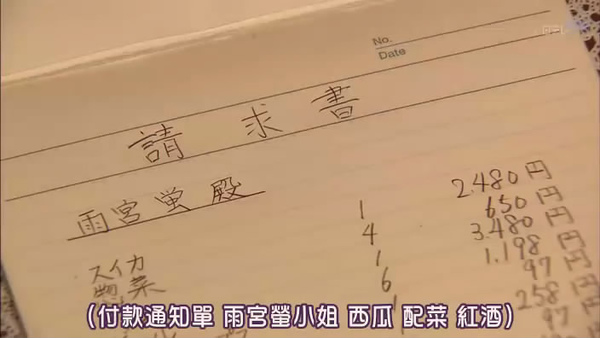 No.
Date
請求書
雨宮蛍殿
スイカ 1 2.480円
惣菜 4 650円
1 3.480円
6 1.198円
1 97円
258円
97
(付款通知單 雨宮螢小姐 西瓜 配菜 紅酒)